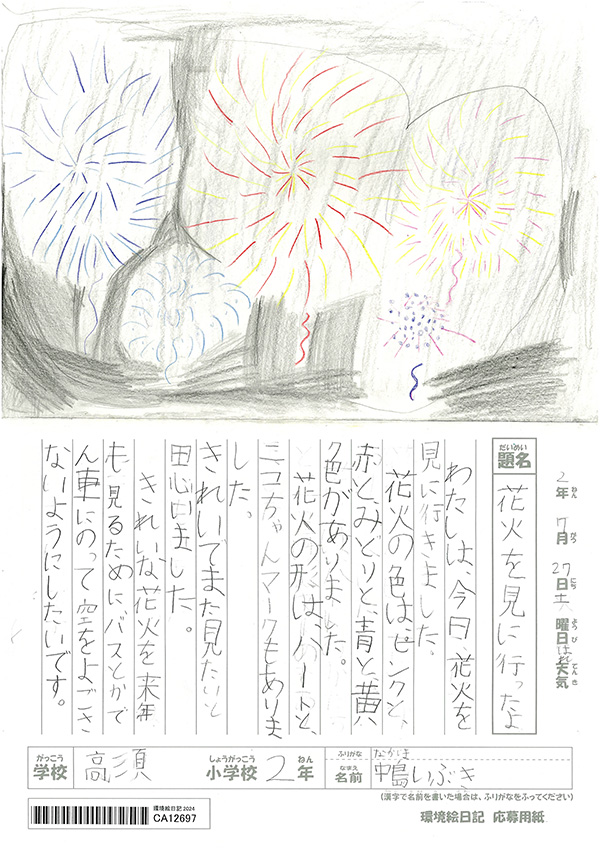 2年 7月 27日 土曜日 はれ天気
ねん がつ にち ようび てんき
だいめい
題名
花火を見に行ったよ
わたしは、今日、花火を
見に行きました。
花火の色は、ピンクと、
赤と、みどりと、青と、黄
色がありました。
花火の形は、ハートと、
ニコちゃんマークもありま
した。
きれいでまた見たいと
思いました。
きれいな花火を来年
も見るためにバスとかで
ん車にのって空をよごさ
ないようにしたいです。
がっこう
学校
高須
しょうがっこう
小学校
2年
ねん
ふりがな
なかしま
なまえ
名前
中島いぶき
(漢字で名前を書いた場合は、ふりがなをふってください)
環境絵日記2024
CA12697
環境絵日記 応募用紙